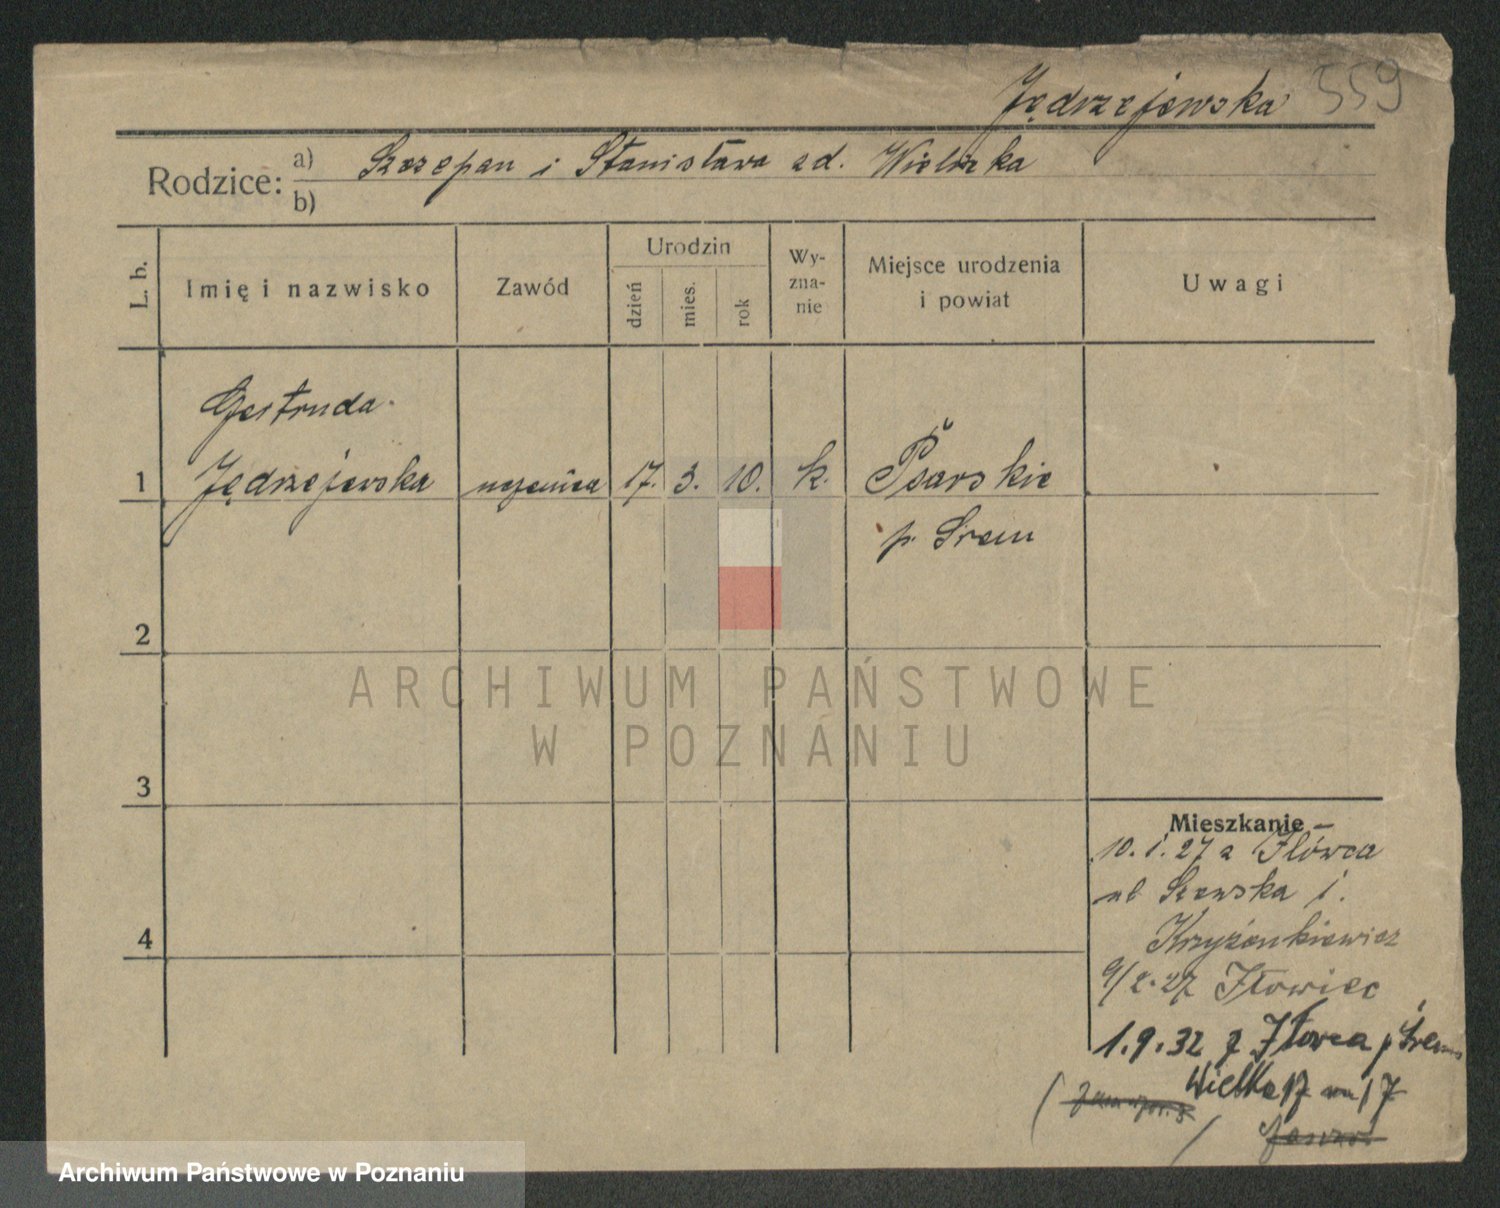 Jędrzejewska 559
Rodzice: a) Szczepan i Stanisława zd. Wielicka
b)
L. b.
Imię i nazwisko
Zawód
Urodzin
dzień
mies.
rok
Wy-
zna-
nie
Miejsce urodzenia
i powiat
Uwagi
Gertruda
1 Jędrzejewska uczenica 17. 3. 10. k. Psarskie
p. Śrem
2
3
4
Mieszkanie
10. 1. 27 z Iłówca
ul Szewska 1.
Krzyżankiewicz
9/2. 27 Iłowiec
1.9.32 z Iłowca p Śrem
Wielka 17
ARCHIWUM PAŃSTWOWE
W POZNANIU
Archiwum Państwowe w Poznaniu